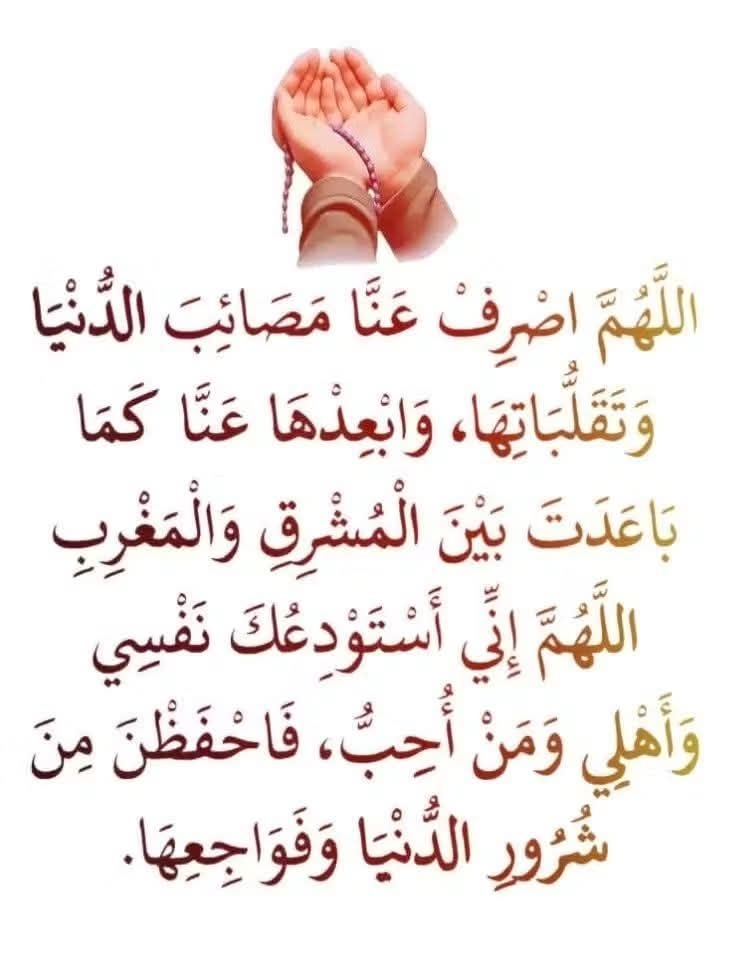 اللَّهُمَّ اصْرِفْ عَنَّا مَصَائِبَ الدُّنْيَا
وَتَقَلُّبَاتِهَا، وَابْعِدْهَا عَنَّا كَمَا
بَاعَدَتَ بَيْنَ الْمُشْرِقِ وَالْمَغْرِبِ
اللَّهُمَّ إِنِّي أَسْتَوْدِعُكَ نَفْسِي
وَأَهْلِي وَمَنْ أُحِبُّ، فَاحْفَظْنَ مِنَ
شُرُورِ الدُّنْيَا وَفَوَاجِعِهَا.